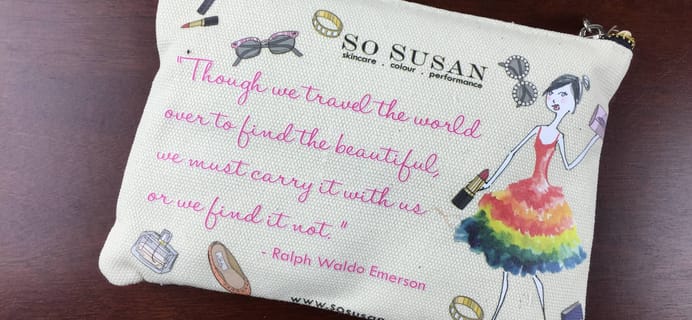 SO SUSAN
skincare . colour . performance
"Though we travel the world
over to find the beautiful,
we must carry it with us
or we find it not."
- Ralph Waldo Emerson
www.sosusan